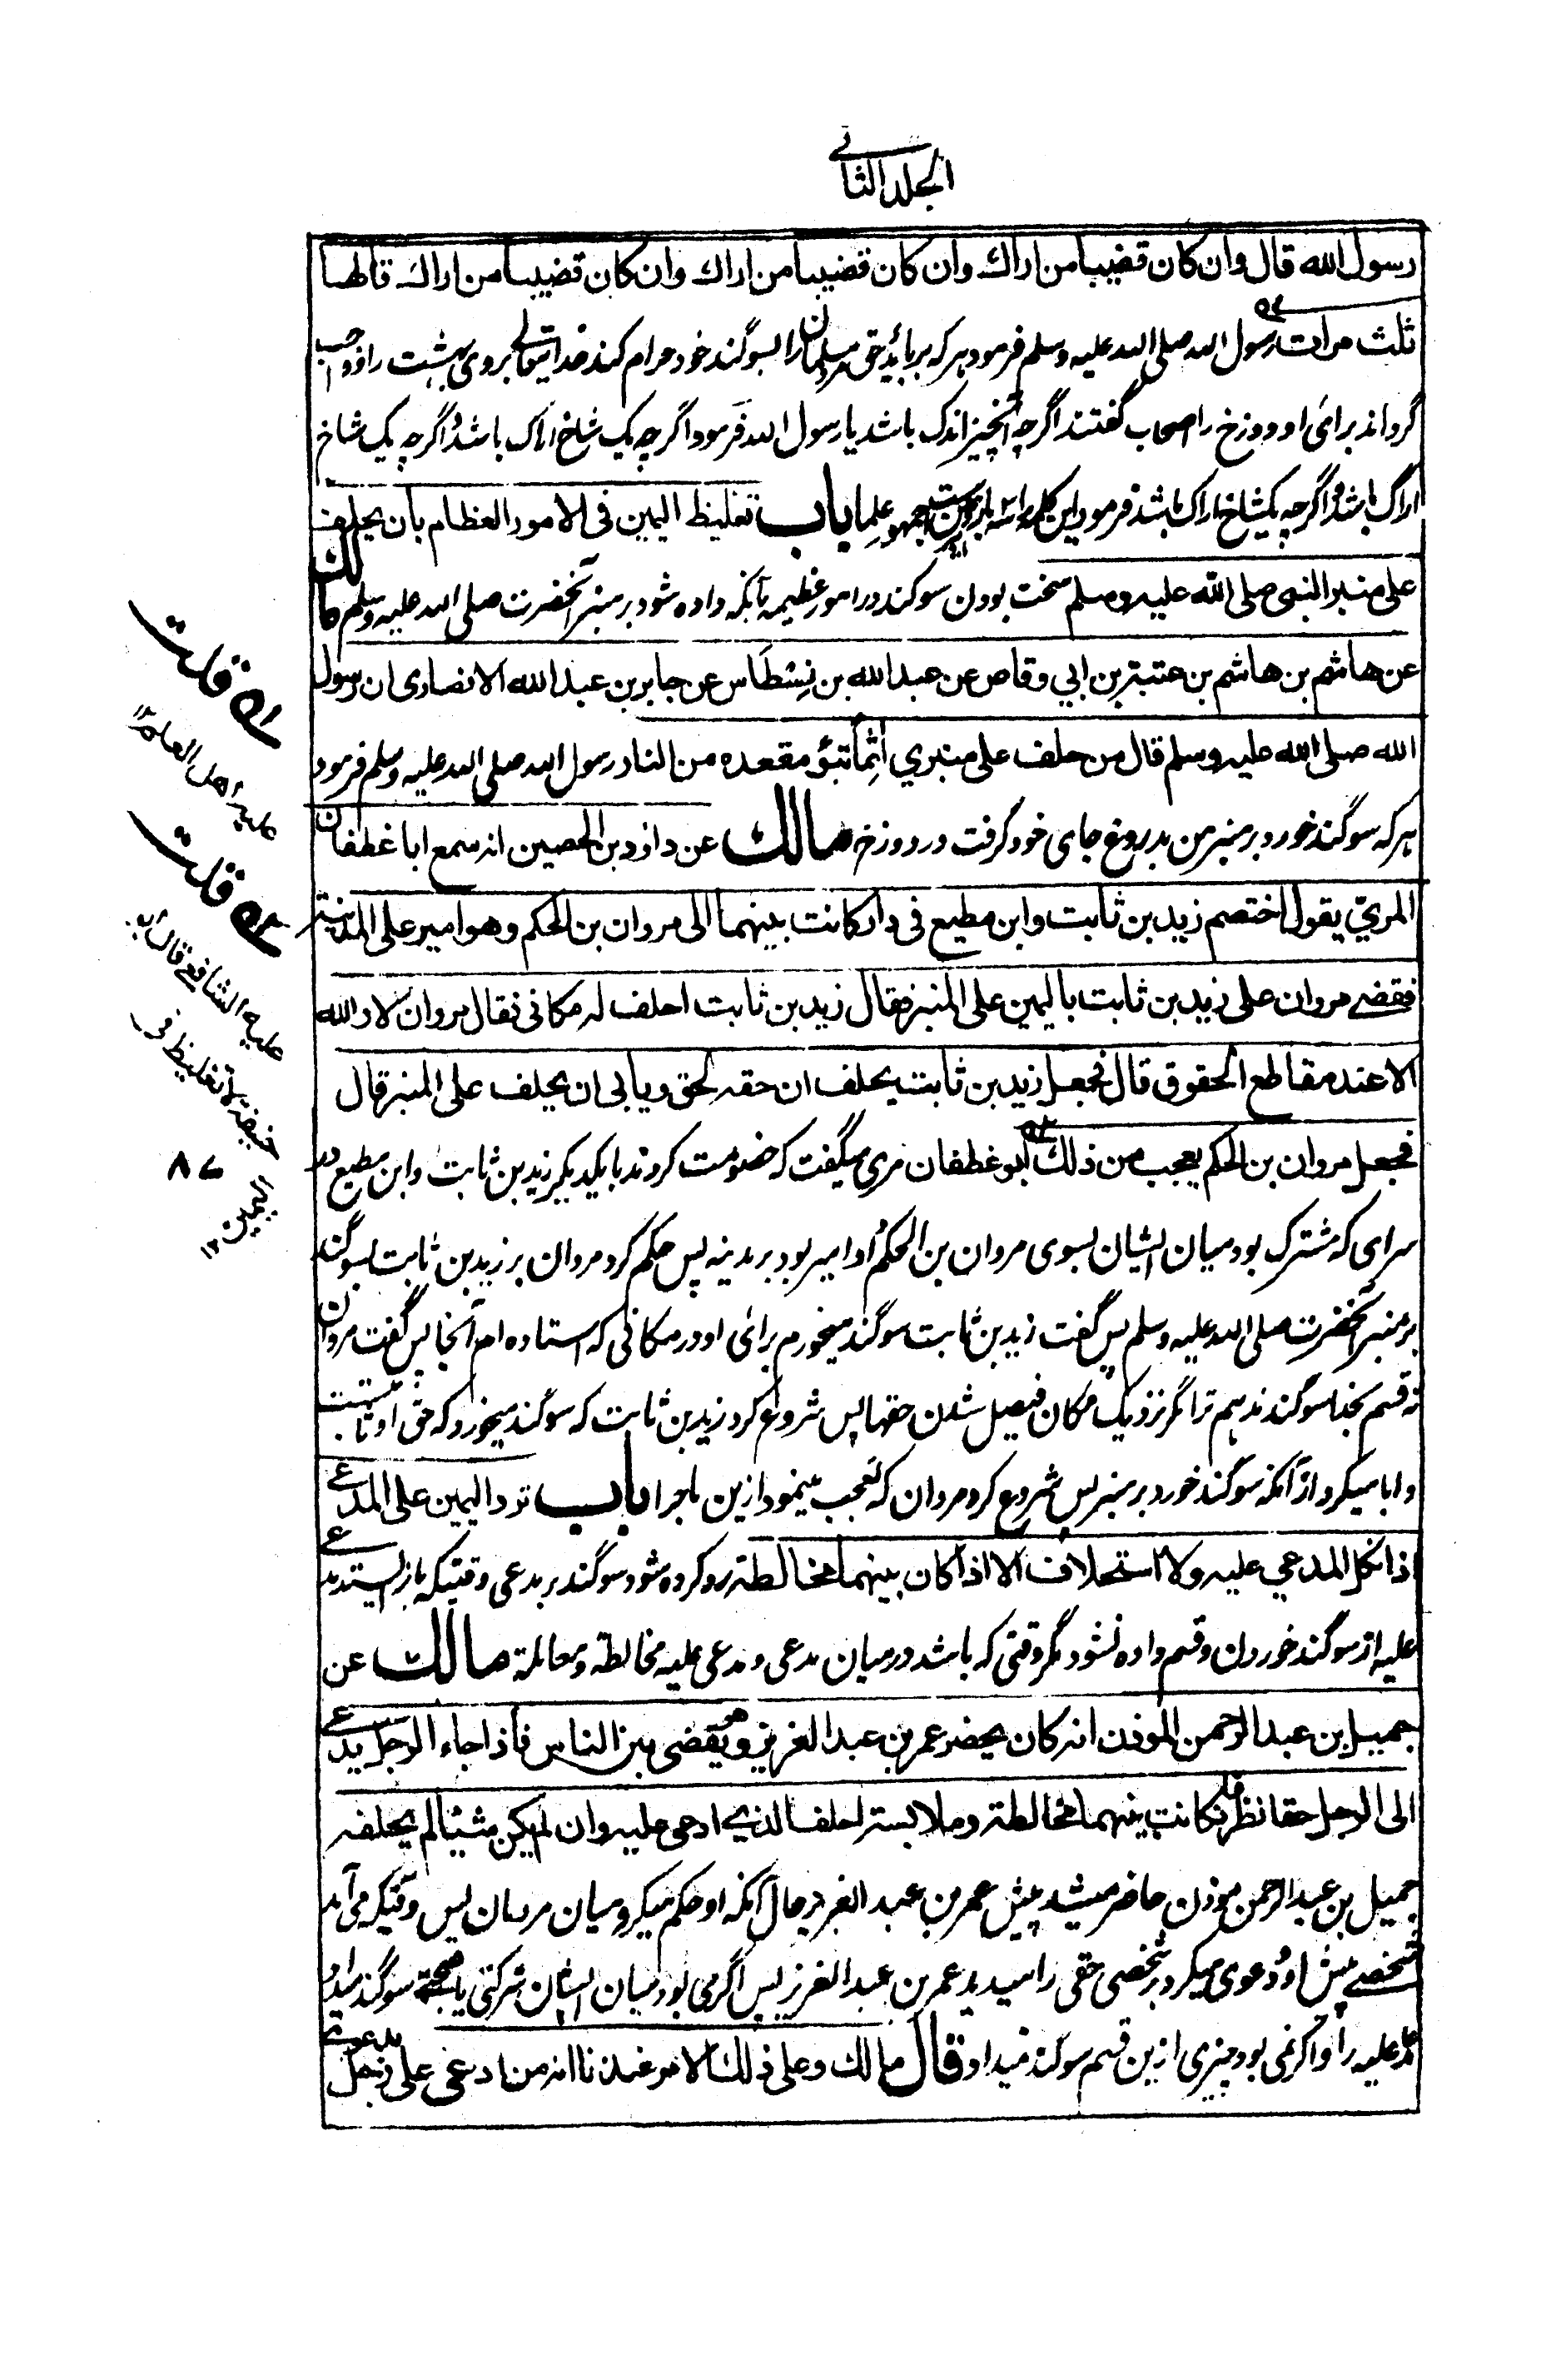 الجلد الثانی
رسول الله قال وان كان قضيبا من اراك وان كان قضيبا من اراك وان كان قضيبا من اراك قالها
ثلث مرات رسول الله صلى الله عليه وسلم فرمود هر که برباید حق مرد مسلمان را بسوگند خود حرام کند خدا تعالی بروی بهشت را و واجب
گرداند برای او دوزخ را اصحاب گفتند اگرچه آنچیز اندک باشد یا رسول الله فرمود اگرچه یک شاخ اراک باشد و اگرچه یک شاخ
اراک باشد و اگرچه یکشاخ اراک باشد فرمود این کلمه را سه بار جمهور علما باب تغليظ اليمين فى الامور العظام بان يحلف
على منبر النبى صلى الله عليه وسلم سخت بودن سوگند در امور عظیمه بآنکه داده شود بر منبر آنحضرت صلى الله عليه وسلم مالك
عن هاشم بن هاشم بن عتبة بن ابي وقاص عن عبد الله بن نِسْطَاس عن جابر بن عبد الله الانصارى ان رسول
الله صلى الله عليه وسلم قال من حلف على منبري آثِماً تبوّؤ مقعده من النار رسول الله صلى الله عليه وسلم فرمود
هر که سوگند خورد بر منبر من بدروغ جای خود گرفت در دوزخ مالك عن داؤد بن الحصين انه سمع ابا غطفان
المريّ يقول اختصم زيد بن ثابت وابن مطيع فى دار كانت بينهما الى مروان بن الحكم وهو امير على المدينة
فقضى مروان على زيد بن ثابت باليمين على المنبر فقال زيد بن ثابت احلف له مكانى فقال مروان لا والله
الا عند مقاطع الحقوق قال فجعل زيد بن ثابت يحلف ان حقه لحق ويابى ان يحلف على المنبر قال
فجعل مروان بن الحكم يعجب من ذلك ابو غطفان مری میگفت که خصومت کردند با یکدیگر زید بن ثابت وابن مطیع در
سرای که مشترک بود میان ایشان بسوی مروان بن الحکم و او امیر بود بر مدینه پس حکم کرد مروان بر زید بن ثابت بسوگند
بر منبر آنحضرت صلى الله عليه وسلم پس گفت زید بن ثابت سوگند میخورم برای او در مکانی که استاده ام آنجا پس گفت مروان
نه قسم بخدا سوگند ندهم ترا مگر نزدیک مکان فیصل شدن حقها پس شروع کرد زید بن ثابت که سوگند میخورد که حق او ثابت است
و ابا میکرد از آنکه سوگند خورد بر منبر پس شروع کرد مروان که تعجب مینمود ازین ماجرا باب ترد اليمين على المدعى
اذا نكل المدعي عليه ولا استحلاف الا اذا كان بينهما مخالطة رد کرده شود سوگند بر مدعی وقتیکه باز ایستد مدعی
علیه از سوگند خوردن و قسم داده نشود مگر وقتی که باشد درمیان مدعی و مدعی علیه مخالطة و معاملة مالك عن
جميل بن عبد الرحمن الموذن انه كان يحضر عمر بن عبد العزيز وهو يقضى بين الناس فاذا جاء الرجل يدعى
الى الرجل حقا نظر فان كانت بينهما مخالطة وملابسة احلف الذى ادعى عليه وان لم يكن شيئا لم يحلفه
جمیل بن عبد الرحمن موذن حاضر میشد پیش عمر بن عبد العزیز در حال آنکه او حکم میکرد میان مردمان پس وقتیکه می آمد
شخصے پیش او و دعوی میکرد بر شخصی حقی را میدید عمر بن عبد العزیز پس اگر می بود میان ایشان شرکتی یا صحبته سوگند میداد
مدعا علیه را و اگر نمی بود چیزی ازین قسم سوگند نمیداد قال مالك وعلى ذلك الامر عندنا انه من ادعى على رجل بدعوى
له قلت
عليه اهل العلم ١٢
له قلت
عليه الشافعى قال ابو
حنيفة لا تغليظ فى
اليمين ١٢